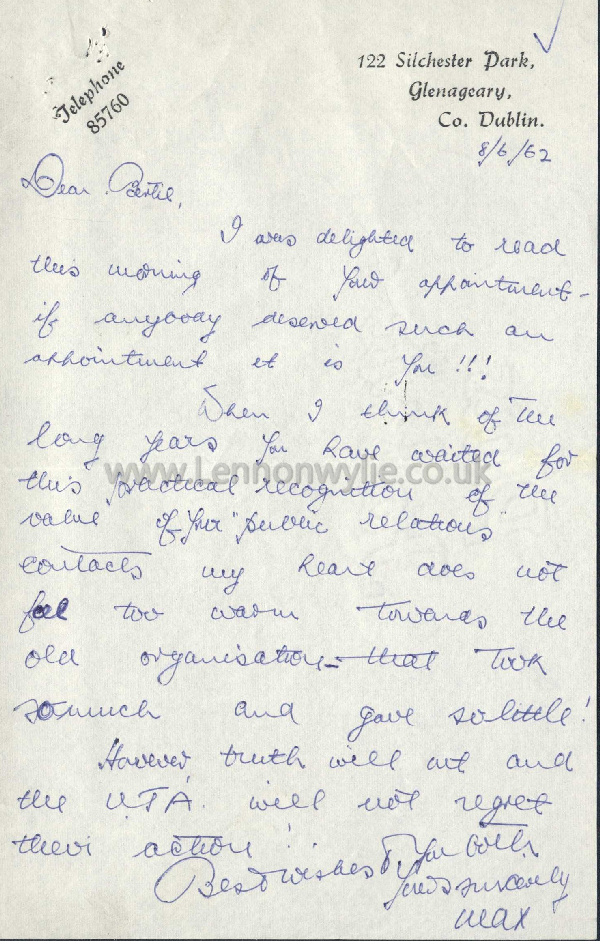 Telephone
85760
122 Silchester Park,
Glenageary,
Co. Dublin.
8/6/62
Dear Bertie,
I was delighted to read
this morning of your appointment -
if anybody deserved such an
appointment it is you!!!
When I think of the
long years you have waited for
this practical recognition of the
value of your "public relations"
contacts my heart does not
feel too warm towards the
old organisation - that took
so much and gave so little!
However, truth will out and
the U.T.A. will not regret
their action!!
Best wishes to you both
Yours sincerely
Max
www.Lennonwylie.co.uk